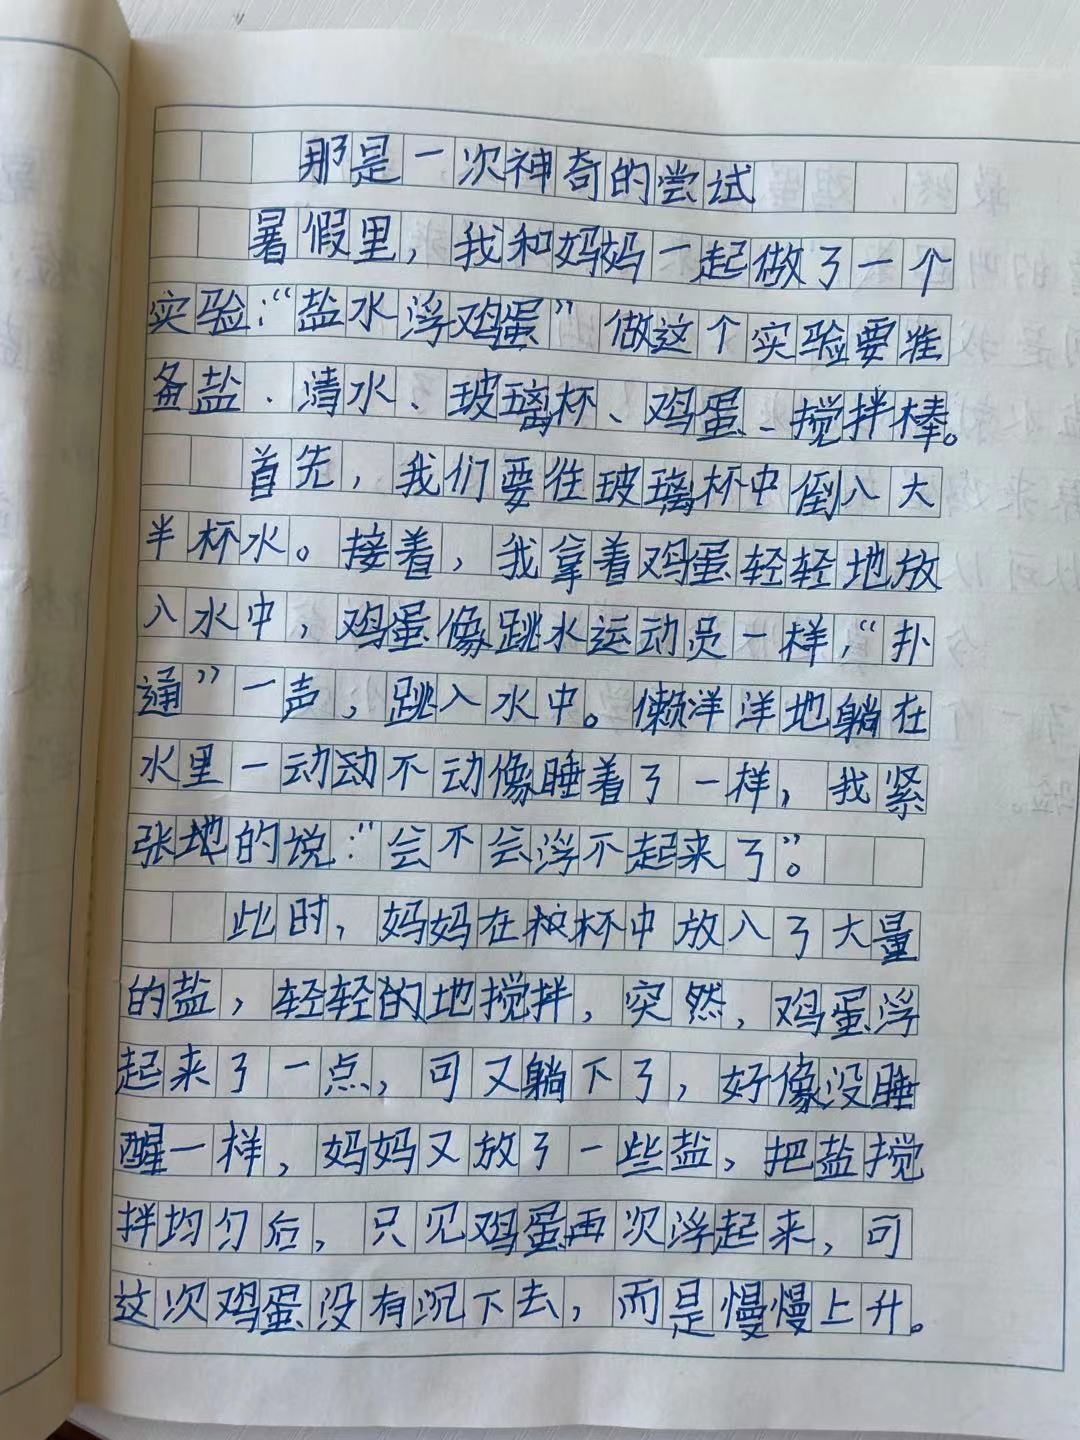 那是一次神奇的尝试
暑假里，我和妈妈一起做了一个
实验：“盐水浮鸡蛋”做这个实验要准
备盐、清水、玻璃杯、鸡蛋、搅拌棒。
首先，我们要往玻璃杯中倒入大
半杯水。接着，我拿着鸡蛋轻轻地放
入水中，鸡蛋像跳水运动员一样，“扑
通”一声，跳入水中。懒洋洋地躺在
水里一动动不动像睡着了一样，我紧
张地的说：“会不会浮不起来了”。
此时，妈妈在杯中放入了大量
的盐，轻轻的地搅拌，突然，鸡蛋浮
起来了一点，可又躺下了，好像没睡
醒一样，妈妈又放了一些盐，把盐搅
拌均匀后，只见鸡蛋再次浮起来，可
这次鸡蛋没有沉下去，而是慢慢上升。